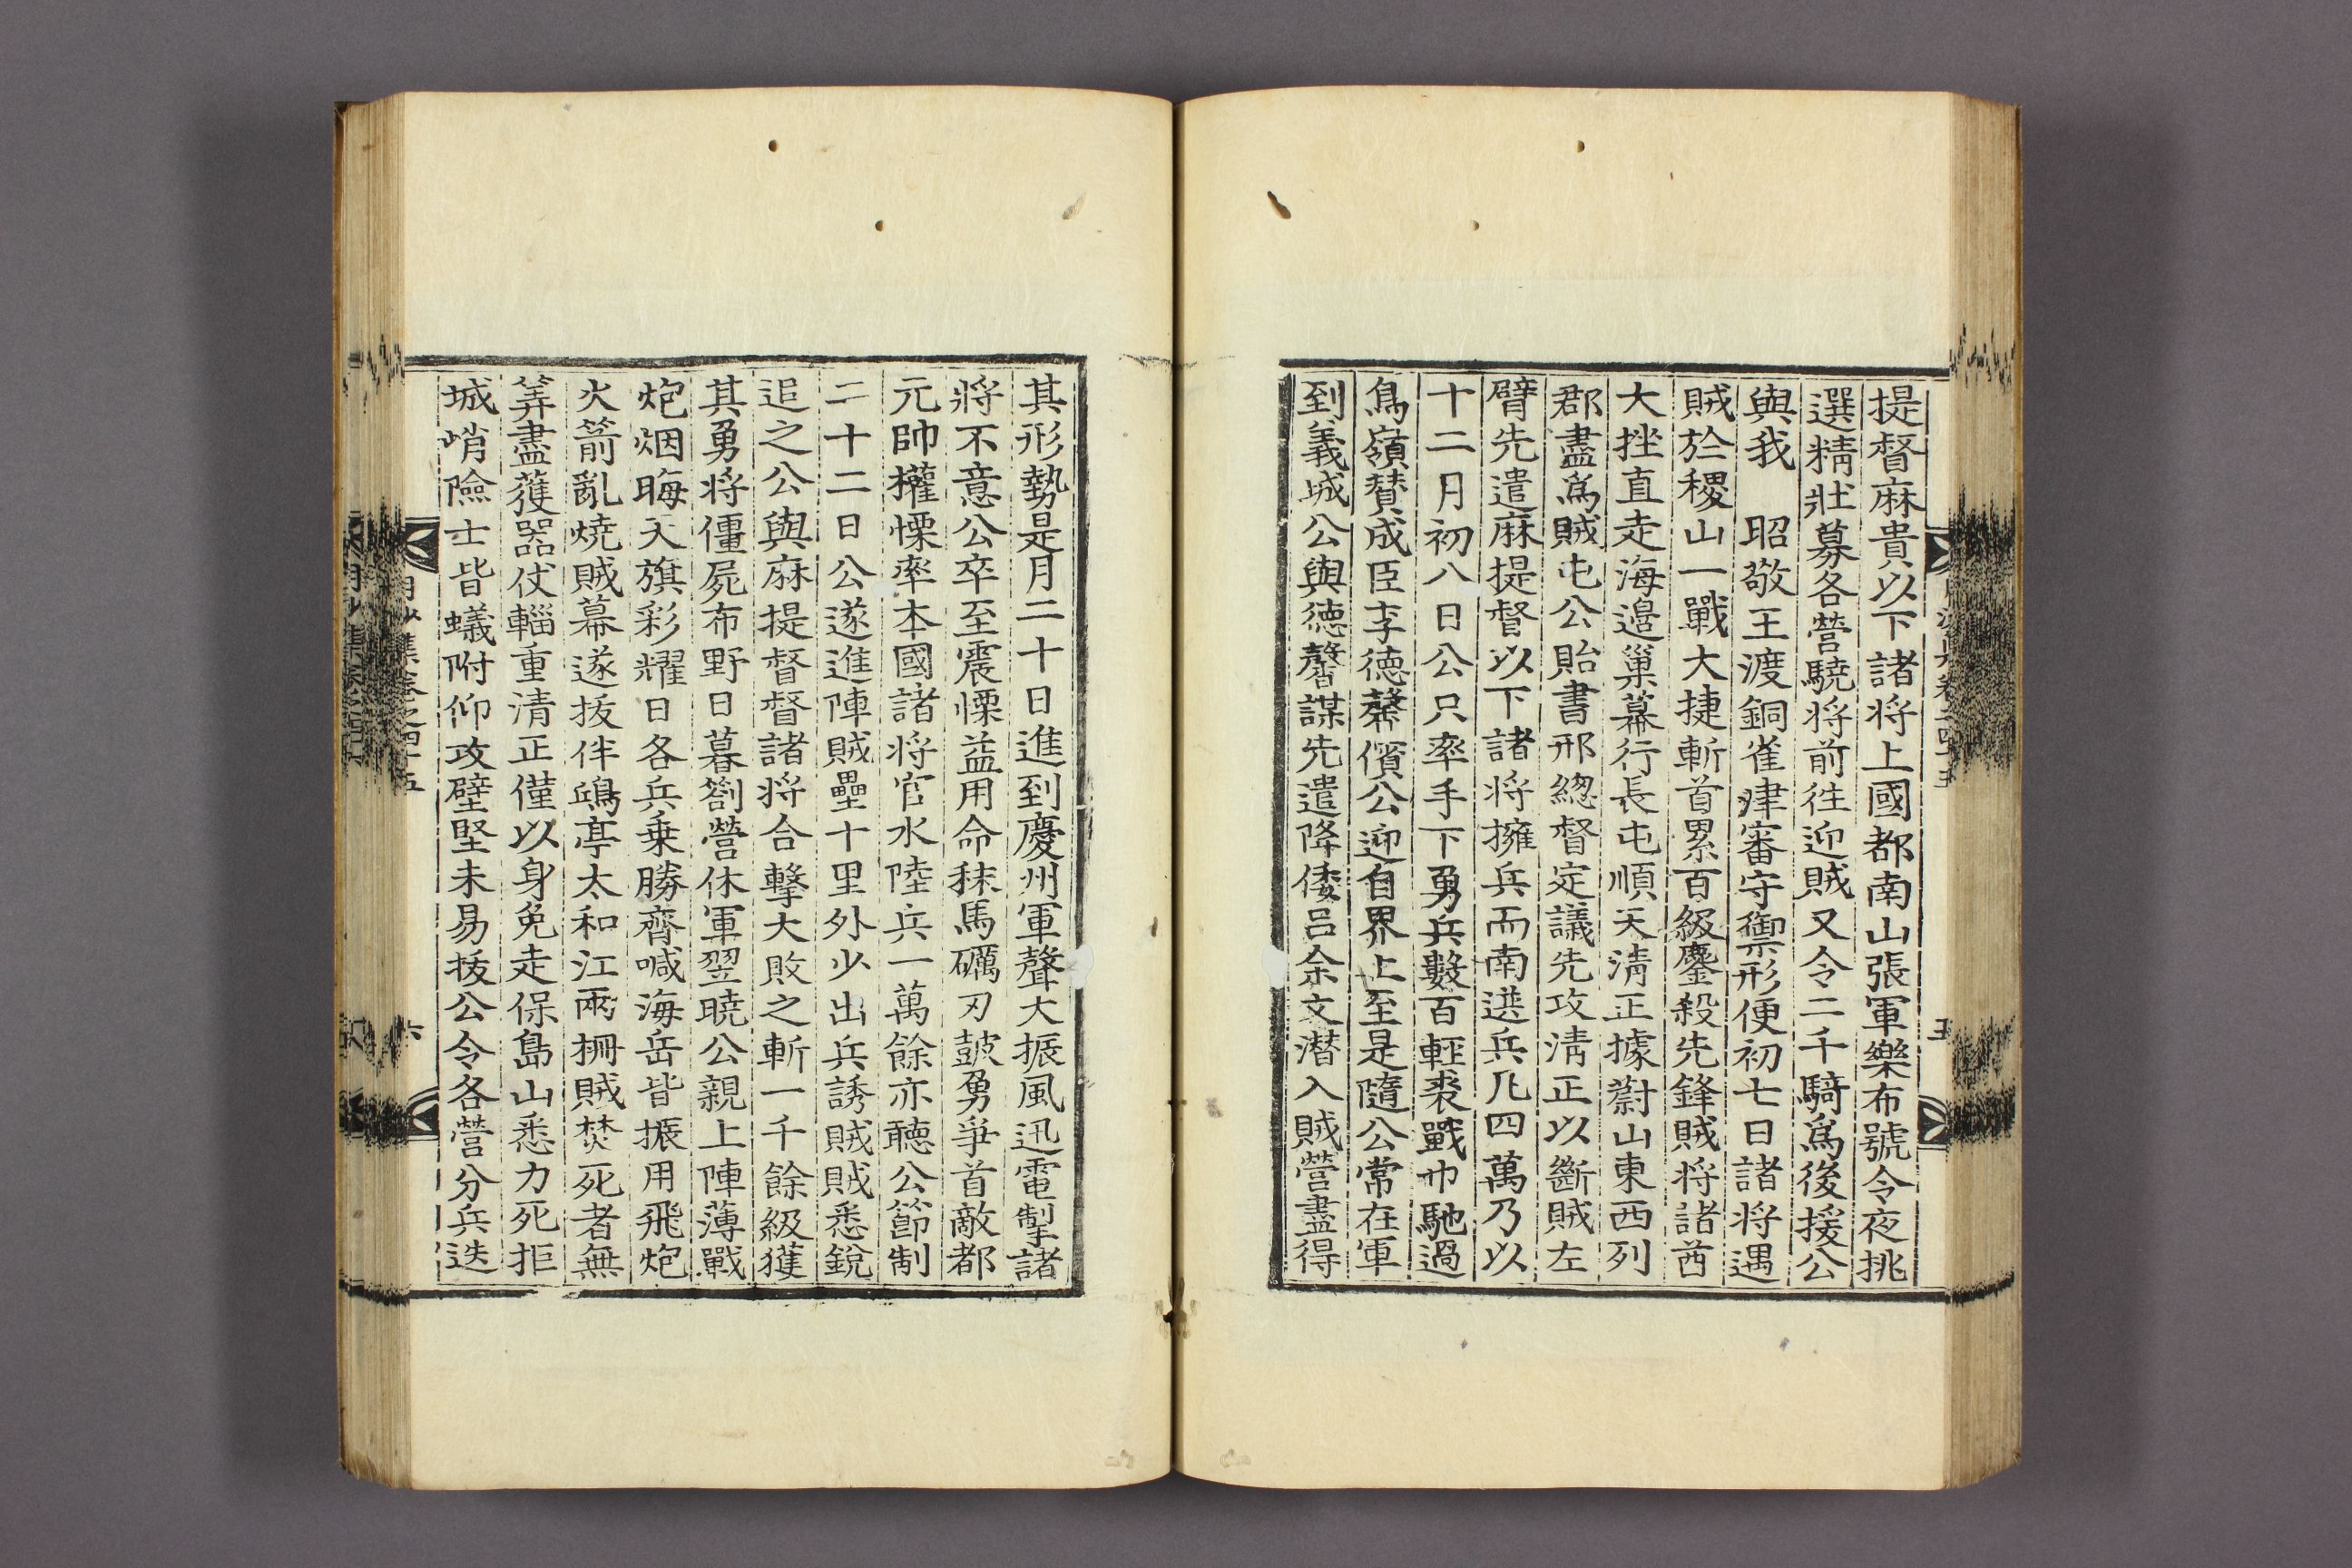 提督麻貴以下諸将上國都南山張軍樂布號令夜挑
選精壯募各營驍将前徃迎賊又令二千騎爲後援公
與我 昭敬王渡銅雀津審守禦形便初七日諸将遇
賊於稷山一戰大捷斬首累百級鏖殺先鋒賊将諸酋
大挫直走海邉巢幕行長屯順天淸正據蔚山東西列
郡盡爲賊屯公貽書邢緫督定議先攻淸正以斷賊左
臂先遣麻提督以下諸将擁兵而南選兵凡四萬乃以
十二月初八日公只率手下勇兵數百輕裘戰巾馳過
鳥嶺賛成臣李德馨儐公迎自界上至是隨公常在軍
到義城公與德馨謀先遣降倭呂余文潛入賊營盡得
其形勢是月二十日進到慶州軍聲大振風迅電掣諸
將不意公卒至震慄益用命秣馬礪刃鼓勇爭首敵都
元帥權慄率本國諸将官水陸兵一萬餘亦聽公節制
二十二日公遂進陣賊壘十里外少出兵誘賊賊悉銳
追之公與麻提督督諸将合擊大敗之斬一千餘級獲
其勇将僵屍布野日暮劄營休軍翌曉公親上陣薄戰
炮烟晦天旗彩耀日各兵乗勝齊喊海岳皆振用飛炮
火箭亂燒賊幕遂拔伴鴎亭太和江兩柵賊焚死者無
筭盡獲器仗輜重清正僅以身免走保島山悉力死拒
城峭險士皆蟻附仰攻壁堅未易拔公令各營分兵迭
月沙集卷之四十五
六